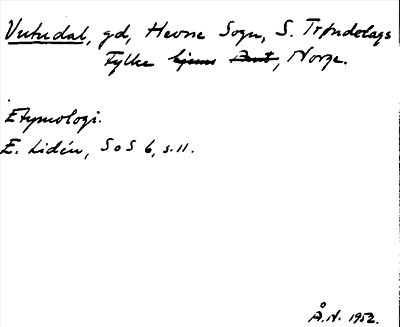 Vutudal, gd, Hevne Sogn, S. Trøndelags
Fylke, Norge.
Etymologi.
E. Lidén, SoS 6, s. 11.
Å.N. 1952.